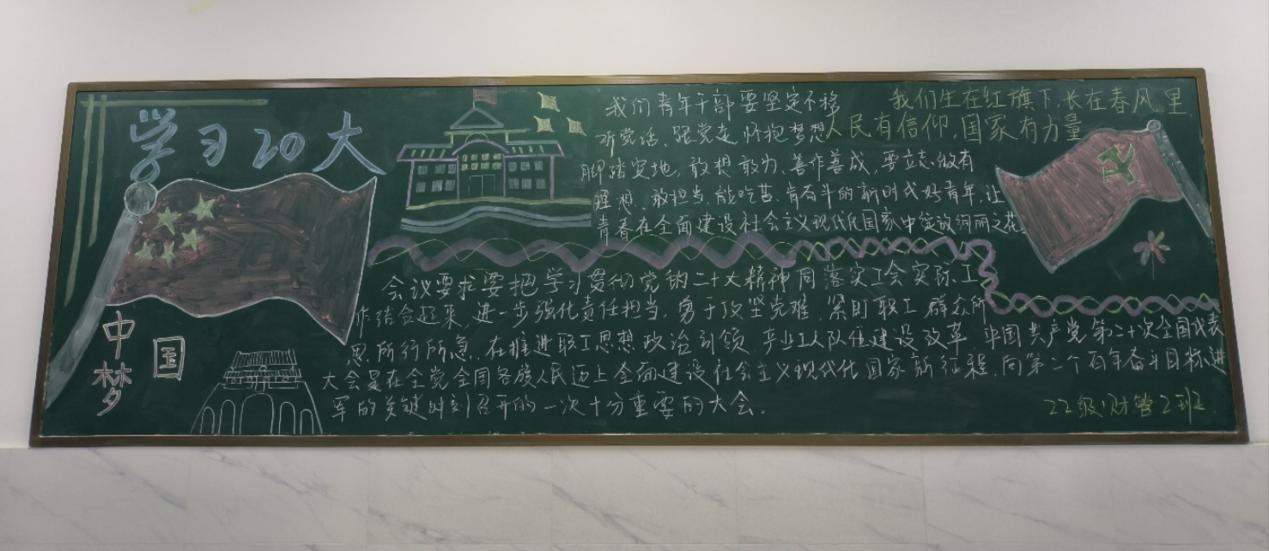 学习20大
我们青年干部要坚定不移
听党话、跟党走、怀抱梦想
脚踏实地，敢想敢为、善作善成，要立志做有
理想、敢担当、能吃苦、肯奋斗的新时代好青年，让
青春在全面建设社会主义现代化国家中绽放绚丽之花
我们生在红旗下，长在春风里
人民有信仰，国家有力量
会议要求要把学习贯彻党的二十大精神同落实工会实际工
作结合起来，进一步强化责任担当，勇于攻坚克难，紧盯职工群众所
思、所行所急，在推进职工思想政治引领、产业工人队伍建设改革
中国共产党第二十次全国代表
大会是在全党全国各族人民迈上全面建设社会主义现代化国家新征程，向第二个百年奋斗目标进
军的关键时刻召开的一次十分重要的大会。
中国
梦
22级财管2班